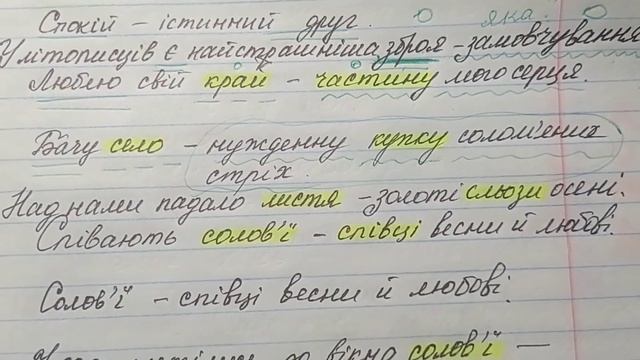 Спокій – істинний друг. яка
У літописців є найстрашніша зброя – замовчування
Люблю свій край – частину мого серця.
Бачу село – нужденну купку солом'яних
стріх.
Над нами падало листя – золоті сльози осені.
Співають солов'ї – співці весни й любові.
Солов'ї – співці весни й любові.
вікна солов'ї –